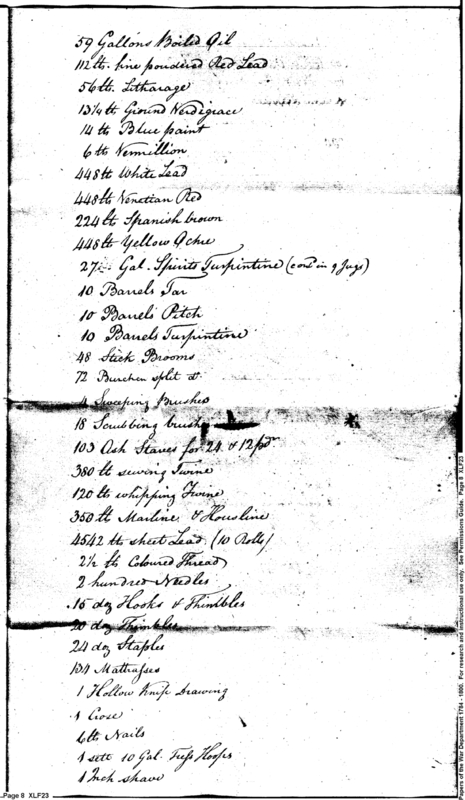 59 Gallons Boiled Oil
112 lb. fine powdered Red Lead
56 lb. Litharage
13¼ lb Ground Verdigrace
14 lb Blue paint
6 lb Vermillion
448 lb White Lead
448 lb Venetian Red
224 lb Spanish brown
448 lb Yellow Ochre
27 Gal. Spirits Turpintine (cont'd in 9 Jugs)
10 Barrels Tar
10 Barrels Pitch
10 Barrels Turpintine
48 Stick Brooms
72 Burchen split do
4 Sweeping Brushes
18 Scrubbing brushes
103 Ash Staves for 24 & 12 pdr
380 lb sewing Twine
120 lb whipping Twine
350 lb Marline & Housline
4542 lb sheet Lead (10 Rolls)
2½ lb Coloured Thread
2 hundred Needles
15 doz Hooks & Thimbles
20 doz Thimbles
24 doz Staples
134 Mattrasses
1 Hollow Knife Drawing
1 Crose
6 lb Nails
1 sett 10 Gal. Truss Hoops
1 Inch shave
Page 8 XLF23
Papers of the War Department 1784 - 1800. For research and instructional use only. See Permissions Guide. Page 8 XLF23